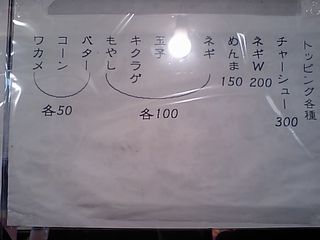 トッピング各種
チャーシュー 300
ネギW 200
めんま 150
ネギ
玉子
キクラゲ
もやし
各100
バター
コーン
ワカメ
各50